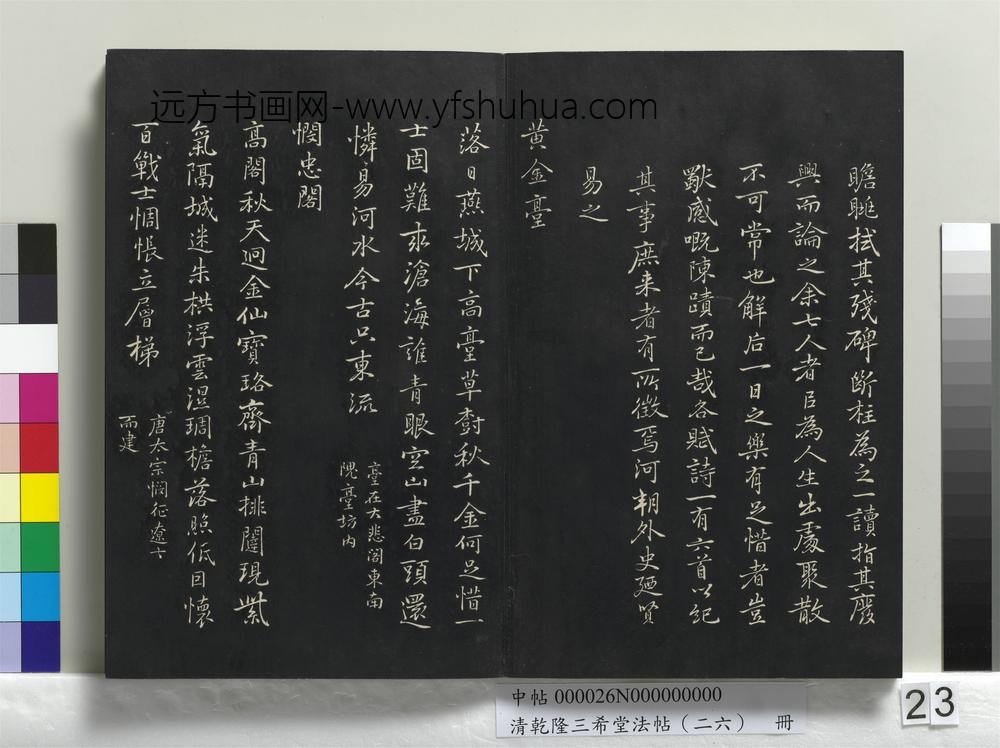 远方书画网-www.yfshuhua.com
瞻眺拭其殘碑斷柱為之一讀指其廢
興而論之余七人者臣為人生出處聚散
不可常也解后一日之樂有足惜者豈
歟感嘅陳蹟而已哉各賦詩一有六首以紀
其事庶来者有所徵焉河朔外史廼賢
易之
黄金臺
落日燕城下高臺草樹秋千金何足惜一
士固難求滄海誰青眼空山盡白頭還
憐易河水今古只東流
臺在大悲閣東南
隗臺坊内
憫忠閣
高閣秋天迥金仙寶珞齋青山排闥現紫
氣隔城迷朱栱浮雲濕琱檐落照低回懷
百戰士惆悵立層梯
唐太宗憫征遼士
而建
中帖 000026N000000000
清乾隆三希堂法帖（二六） 冊
23